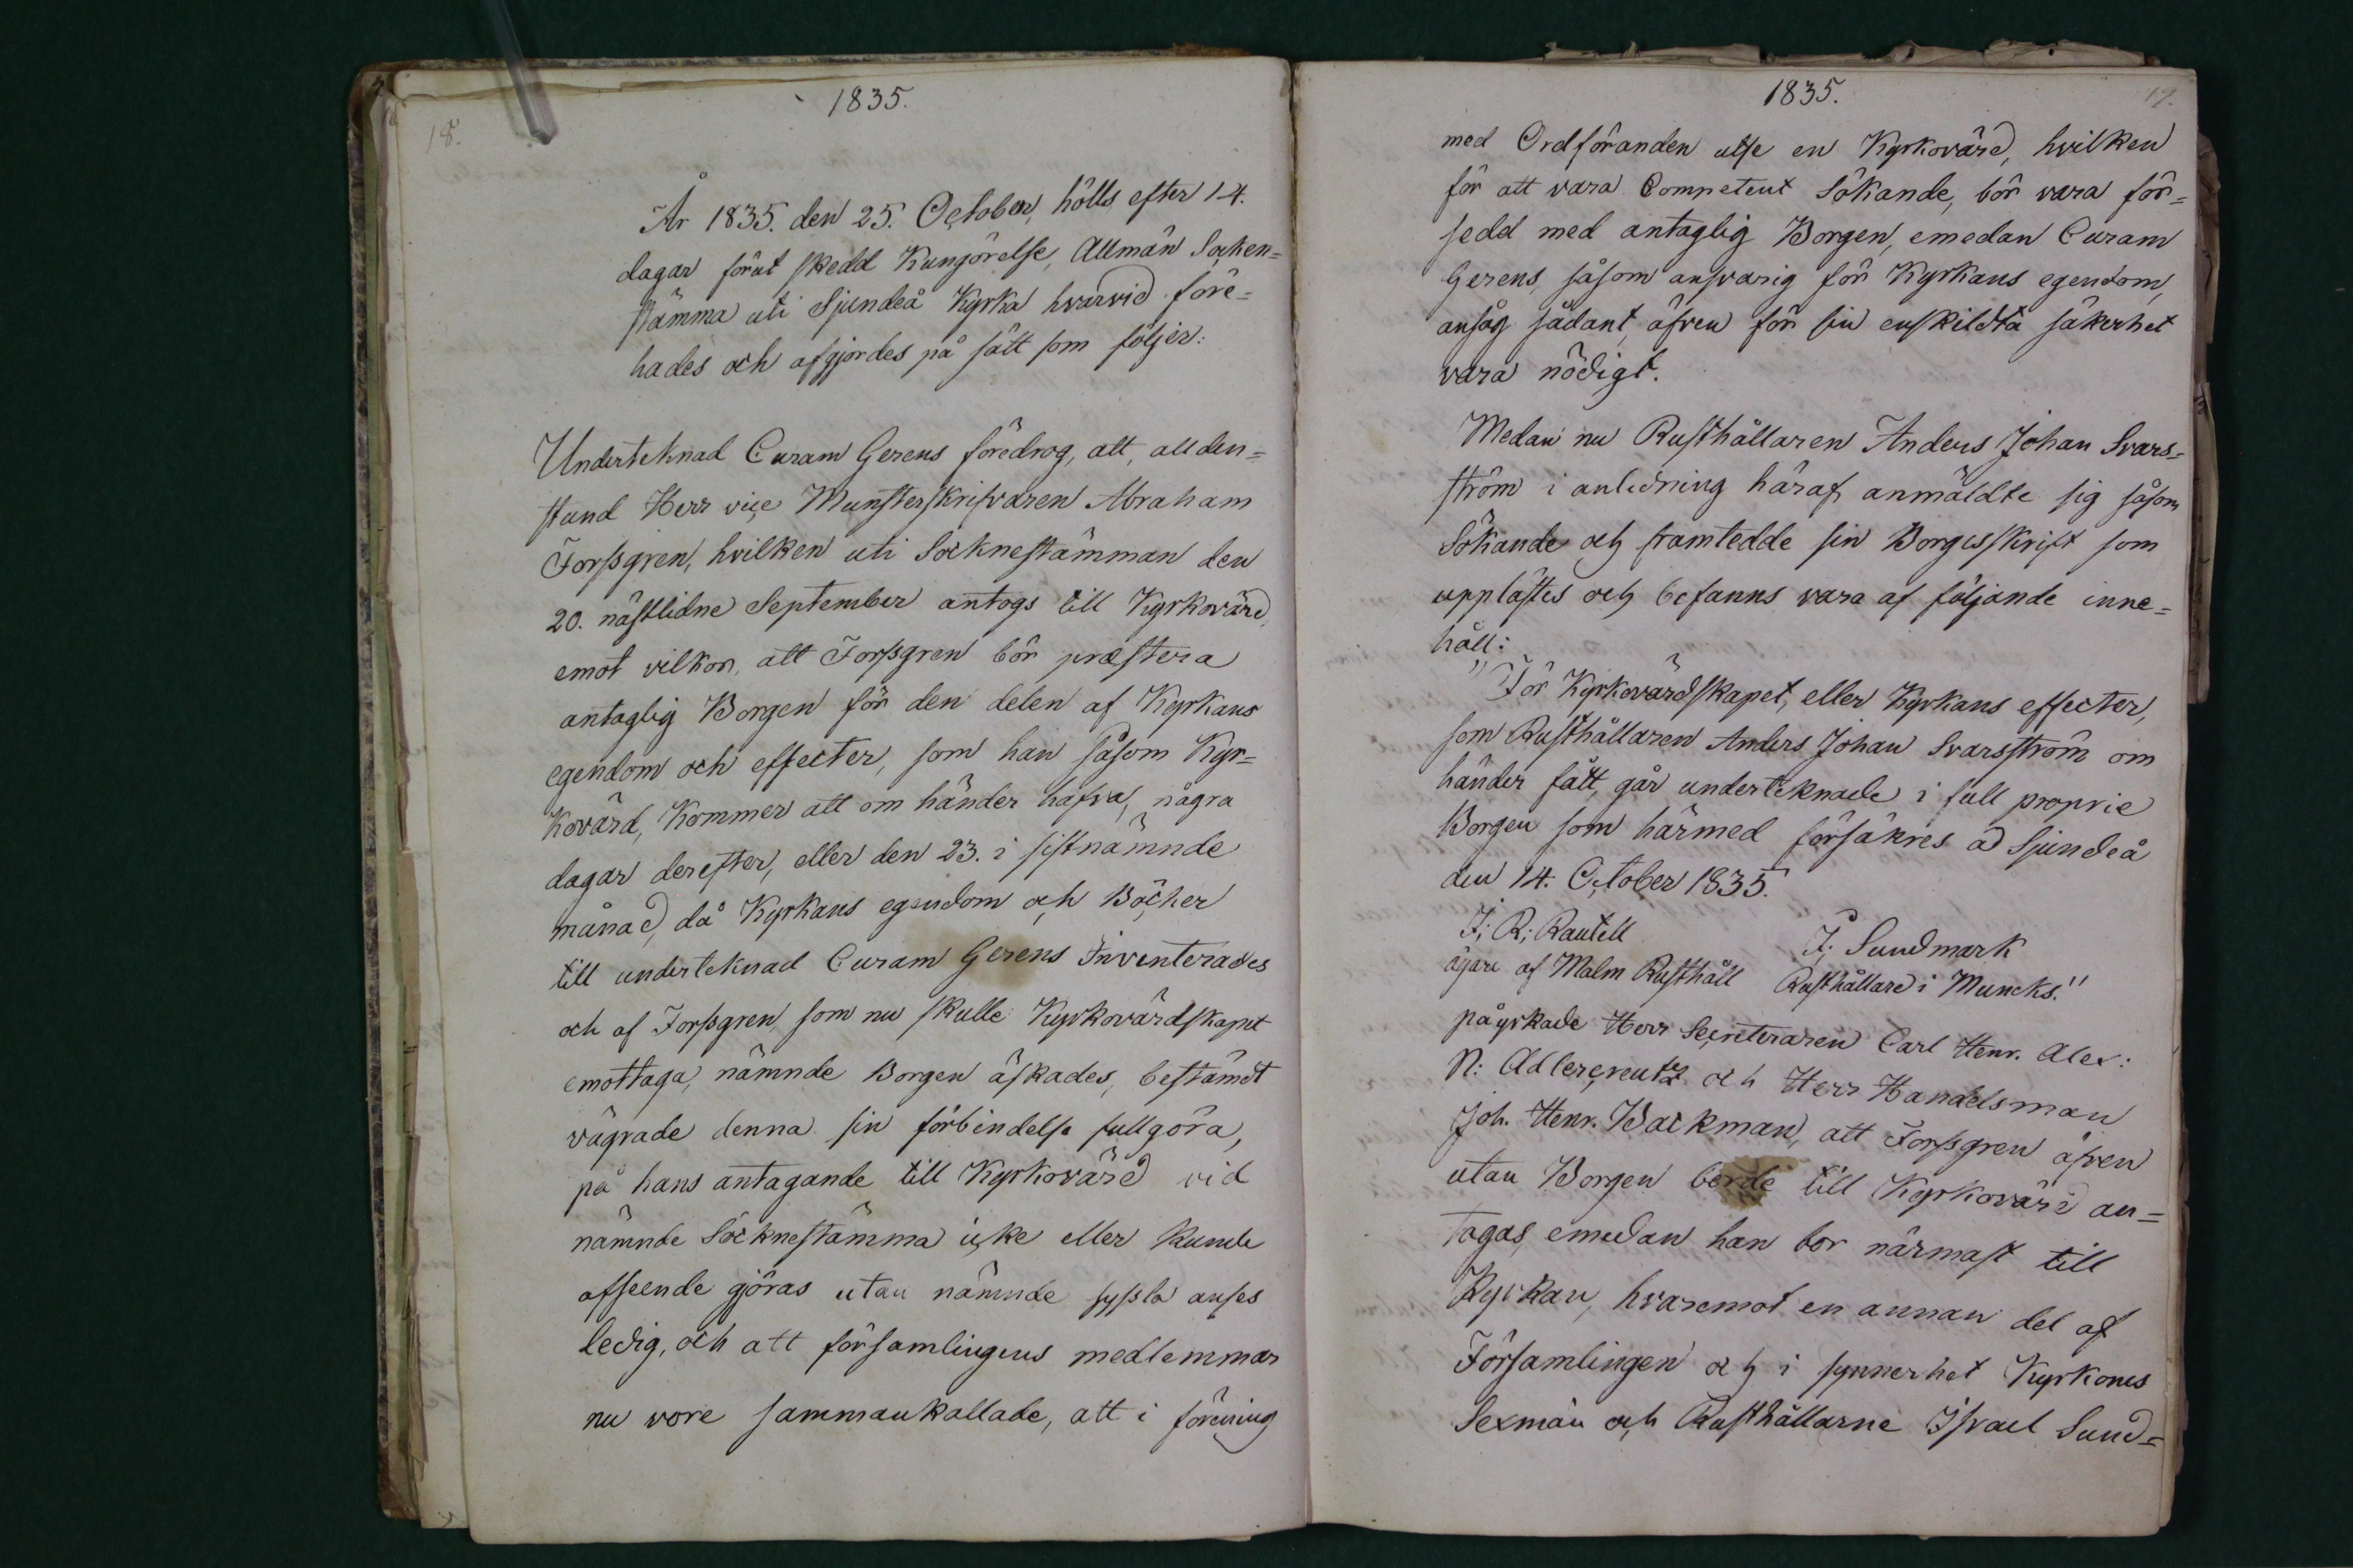 1835.
18.
År 1835. den 25. October, hölls efter 14.
dagar förut skedd Kungörelse, Allmän Socken=
stämma uti Sjundeå Kyrka hvarvid före=
hades och afgjordes på sätt som följer:
Underteknad Curam Gerens föredrog, att, allden=
stund Herr vice Munsterskrifvaren Abraham
Forssgren, hvilken uti Socknestämman den
20. nästlidne September antogs till Kyrkovärd,
emot vilkor, att Forssgren bör præstera
antaglig Borgen för den delen af Kyrkans
egendom och effecter, som han såsom Kyr=
kovärd, kommer att om händer hafva, några
dagar derefter, eller den 23. i sistnämnde
månad, då Kyrkans egendom och Böcker
till underteknad Curam Gerens Inventerades
och af Forssgren, som nu skulle Kyrkovärdskapet
emottaga, nämnde Borgen äskades, bestämdt
vägrade denna sin förbindelse fullgöra,
på hans antagande till Kyrkovärd vid
nämnde Socknestämma icke eller kunde
afseende göras utan nämnde syssla anses
ledig, och att församlingens medlemmar
nu vore sammankallade, att i förening
1835.
19.
med Ordföranden utse en Kyrkovärd, hvilken
för att vara Competent Sökande, bör vara för=
sedd med antaglig Borgen, emedan Curam
Gerens, såsom ansvarig för Kyrkans egendom,
ansåg sådant, äfven för sin enskildta säkerhet
vara nödigt.
Medan nu Rusthållaren Anders Johan Svars=
ström i anledning häraf, anmäldte sig såsom
Sökande och framtedde sin Borgesskrift som
upplästes och befanns vara af följande inne=
håll:
"För Kyrkovärdskapet, eller Kyrkans effecter,
som Rusthållaren Anders Johan Svarsström om
händer fått, går underteknade i full proprie
Borgen som härmed försäkres åd Sjundeå
den 14. October 1835.
J; R; Rautell J; Sundmark
ägare af Malm Rusthåll Rusthållare i Muncks."
påyrkade Herr Secreteraren Carl Henr. Alex:
N: Adlercreutz och Herr Handelsman
Joh. Henr. Backman, att Forssgren äfven
utan Borgen borde till Kyrkovärd an=
tagas, emedan han bor närmast till
Kyrkan, hvaremot en annan del af
Församlingen och i synnerhet Kyrkones
Sexmän och Rusthållarne Israel Sund=